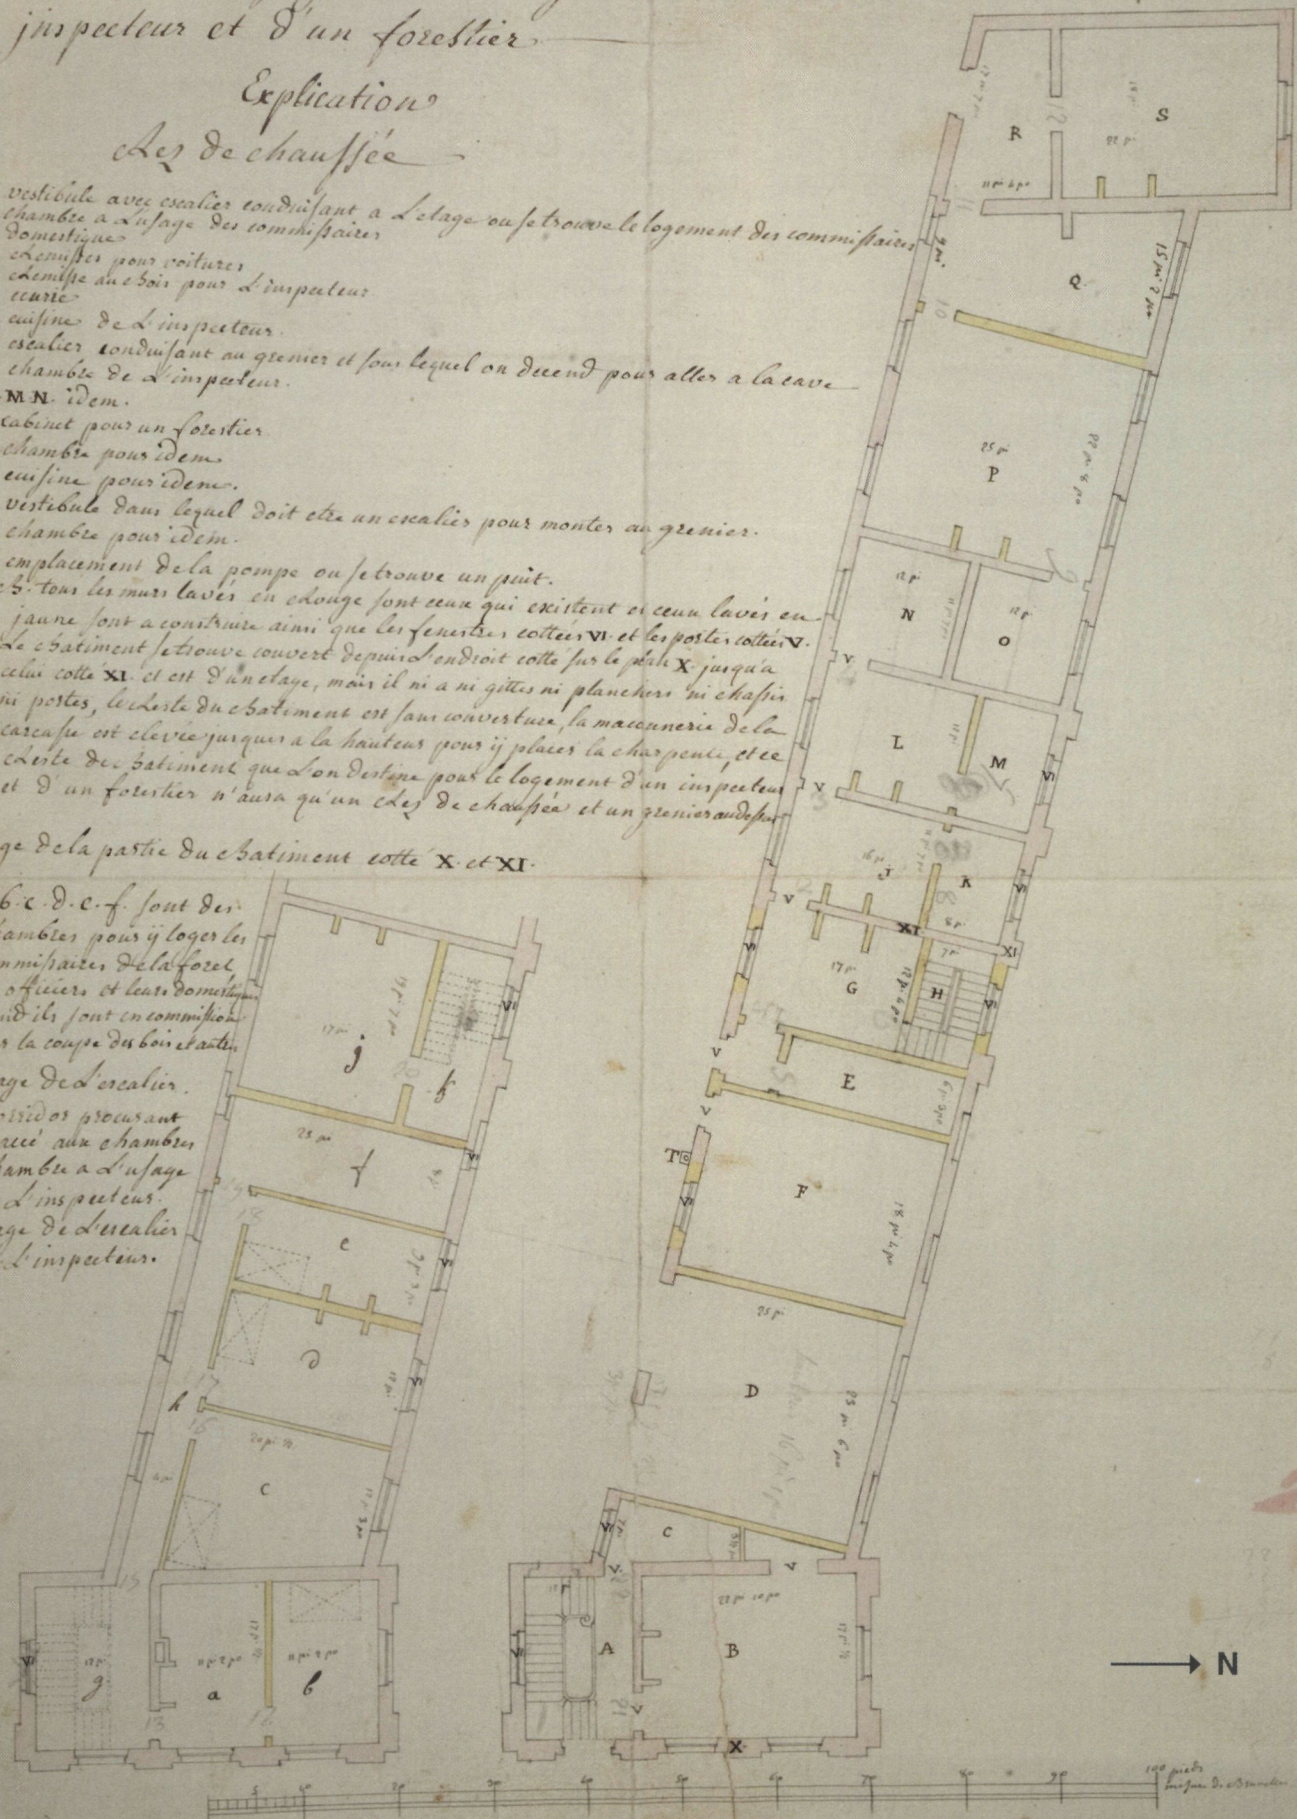 inspecteur et d'un forestier
Explication
Rez de chaussée
vestibule avec escalier conduisant a L'etage ou se trouve le logement des commissaires
chambre a L'usage des commissaires
domestique
Remises pour voitures
Remise au bois pour L'inspecteur
ecurie
cuisine de L'inspecteur.
escalier conduisant au grenier et sous lequel on decend pour aller a la cave
chambre de L'inspecteur.
M N. idem.
cabinet pour un forestier
chambre pour idem
cuisine pour idem.
vestibule dans lequel doit etre un escalier pour monter au grenier.
chambre pour idem.
emplacement de la pompe ou se trouve un puit.
B. tous les murs lavés en Rouge sont ceux qui existent et ceux lavés en
jaune sont a construire ainsi que les fenestres cottées VI. et les portes cottées V.
Le Batiment se trouve couvert depuis L'endroit cotté sur le plan X. jusqu'a
celui cotté XI. et est d'un etage, mais il ni a ni gittes ni planchers ni chassis
ni portes, le Reste du Batiment est sans couverture, la maconnerie de la
carcasse est elevée jusques a la hauteur pour ÿ placer la charpente, et ce
Reste de Batiment que L'on destine pour le logement d'un inspecteur
et d'un forestier n'aura qu'un Rez de chaussée et un grenier au dessus
ge de la partie du Batiment cotté X. et XI.
b. c. d. e. f. sont des
ambres pour ÿ loger les
mmissaires de la foret,
officiers et leurs domestiques
nd ils sont en commission
r la coupe des bois et autre
age de L'escalier.
orridor procurant
accé aux chambres
ambre a L'usage
L'inspecteur.
ge de L'escalier
L'inspecteur.
R
S
12
18 pi
22 pi
11
9 pi.
Q
15 pi. 2 po
10
25 pi
P
22 pi 8 po
N
O
12 pi
V
L
M
VI
V
J
K
VI
V
XI
XI
VI
17 pi
G
H
VI
7 pi
V
E
V
T
VI
F
18 pi 4 po
25 pi
D
23 pi 6 po
VI
C
V
V
VI
A
B
V
X
j
17 pi
k
VI
25 pi
f
VI
19
18
e
VI
9 pi 3 po
d
VI
17
h
16
c
15
VI
g
a
b
13
12
N
5
10
20
30
40
50
60
70
80
90
100 pieds
mesure de Bruxelles